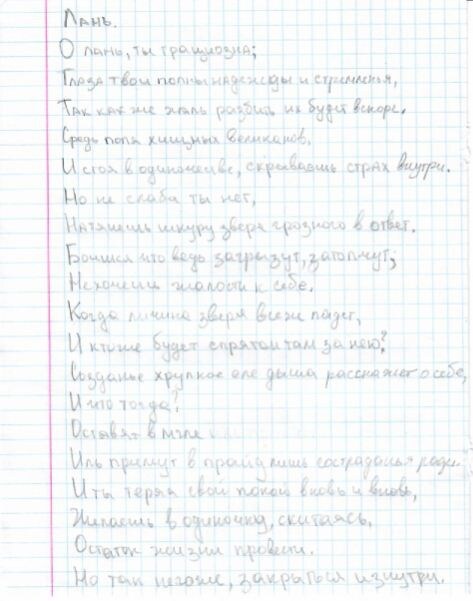 Лань.
О лань, ты грациозна;
Глаза твои полны надежды и стремленья,
Так как же жаль разбить их будет вскоре,
Средь поля хищных великанов,
И стоя в одиночестве, скрываешь страх внутри.
Но не слаба ты нет,
Натянешь шкуру зверя грозного в ответ.
Боишся что ведь загрызут, затопчут;
Нехочешь жалости к себе.
Когда личина зверя всеже падет,
И ктоже будет спрятан там за нею?
Созданье хрупкое еле дыша расскажет о себе,
И что тогда?
Оставят в мгле
Иль примут в прайд лишь состраданья ради.
И ты теряя свой покой вновь и вновь,
Желаешь в одиночку, скитаясь,
Остаток жизни провести.
Но так негоже, закрыться изнутри.